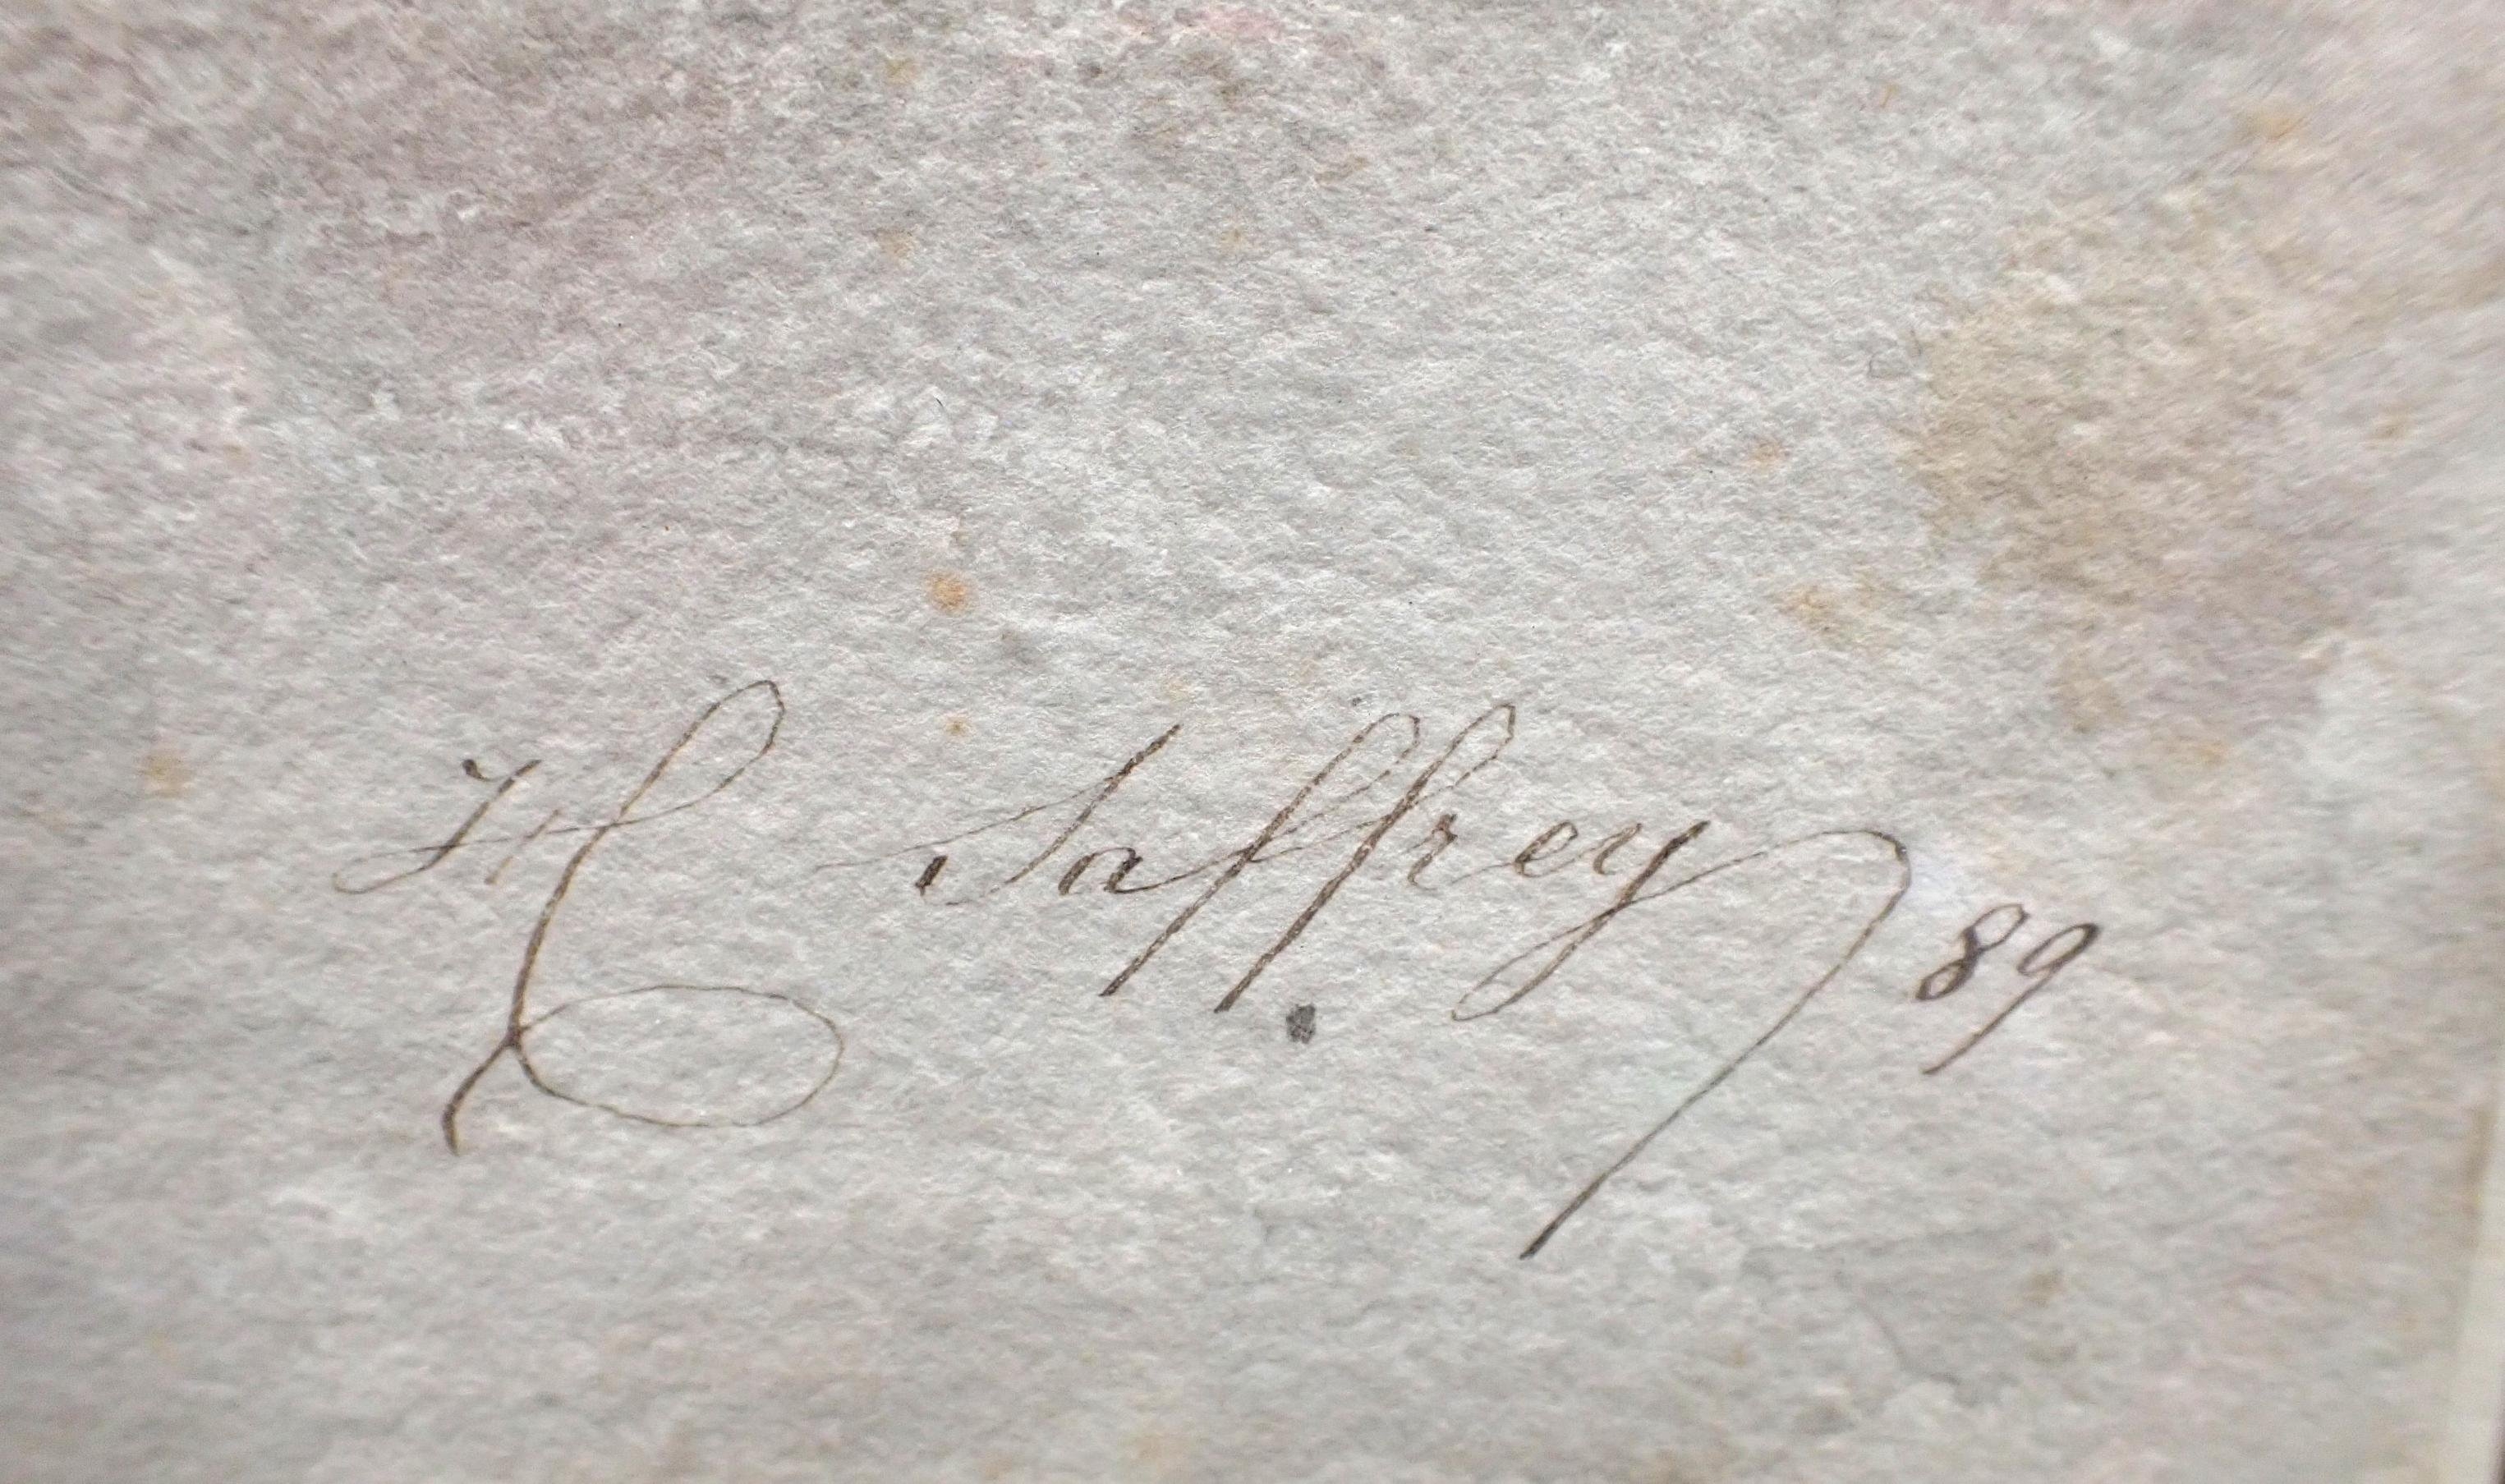 H Saffrey 89